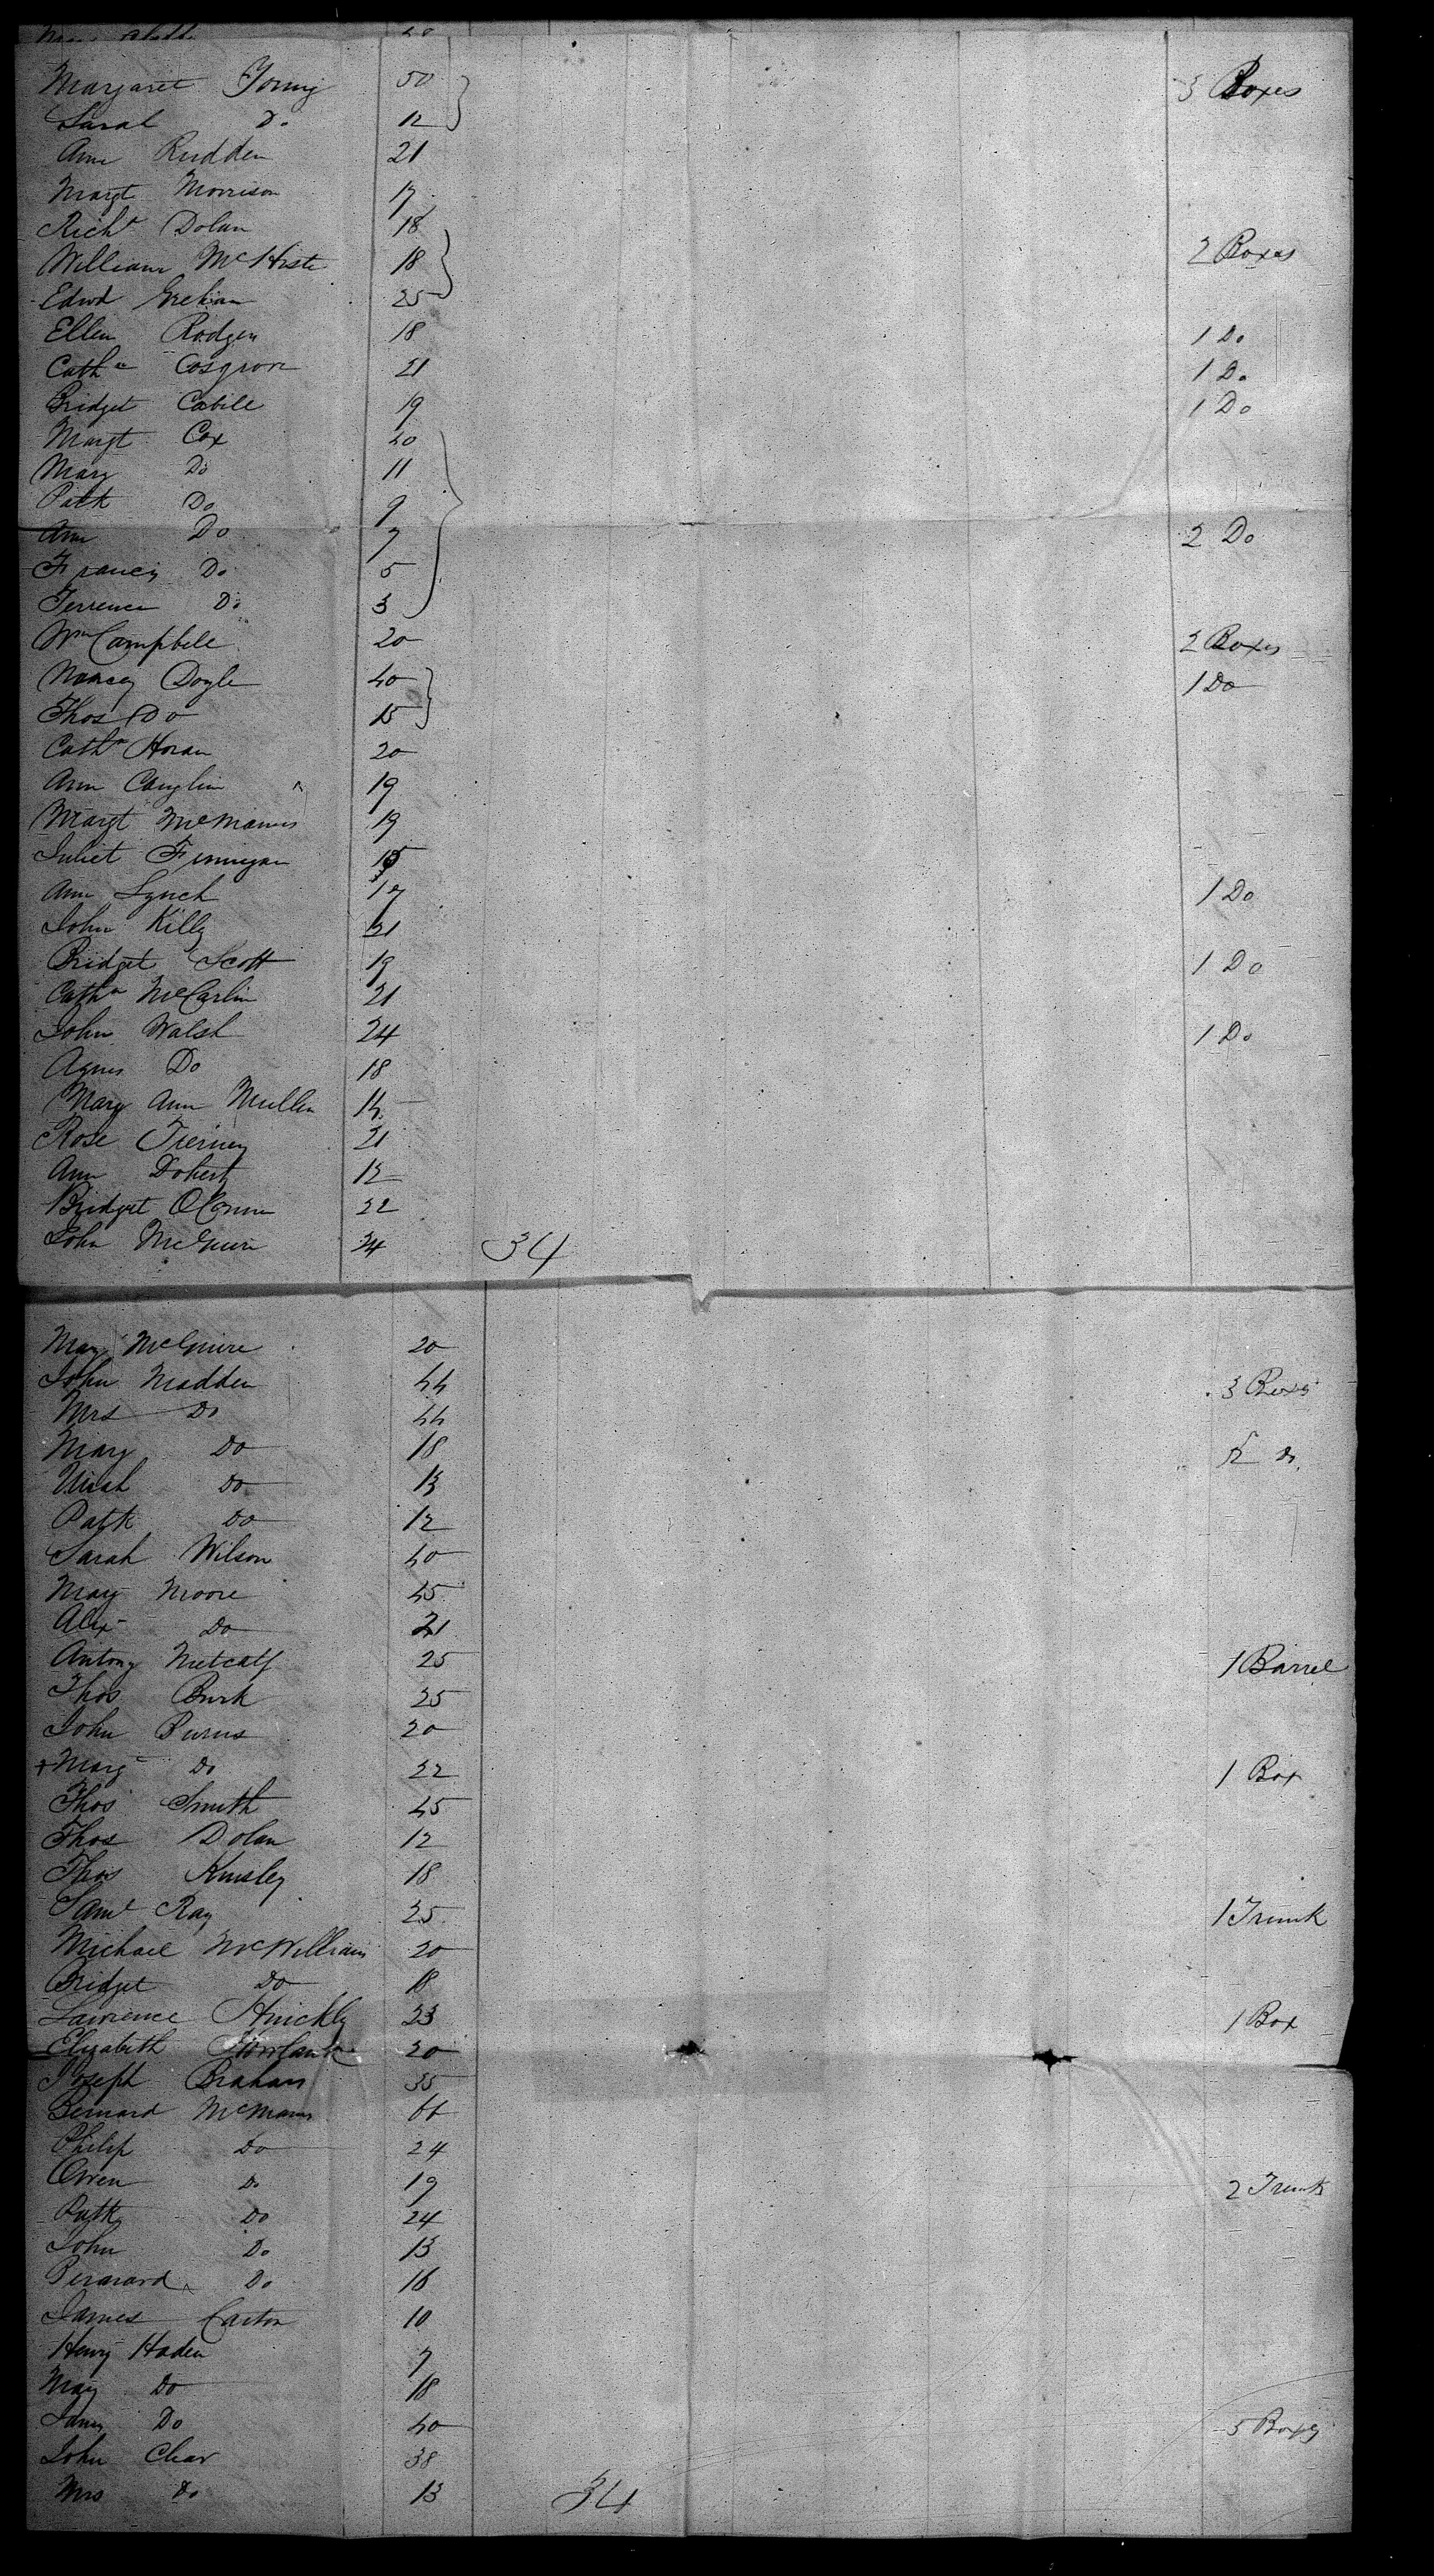 Margaret Young 50 3 Boxes
Sarah Do 12
Ann Rudden 21
Margt Morrison 17
Richd Dolan 18
William McHiste 18 2 Boxes
Edwd Grehan 25
Ellen Rodgers 18 1 Do
Catha Cosgrove 21 1 Do
Bridget Cahill 19 1 Do
Margt Cox 40
Mary Do 11
Patk Do 9
Ann Do 7 2 Do
Francis Do 5
Terrence Do 3
Wm Campbell 20 2 Boxes
Nancy Doyle 40 1 Do
Thos Do 15
Catha Horan 20
Ann Coughlin 19
Margt McManus 19
Juliet Finnigan
Ann Lynch 17 1 Do
John Killy 21
Bridget Scott 19 1 Do
Catha McCarlin 21
John Walsh 24 1 Do
Agnes Do 18
Mary Ann Mullen 14
Rose Tierney 21
Ann Doherty 12
Bridget OConnor 22
John McGuire 34 34
Mary McGuire 20
John Madden 44 3 Boxes
Mrs Do 44
Mary Do 18 Do
Do 13
Patk Do 12
Sarah Wilson 40
Mary Moore 45
Alex Do 21
Antony Metcalf 25 1 Barrel
Thos Burk 25
John Burns 20
Mary Do 22 1 Box
Thos Smith 45
Thos Dolan 12
Thos Kinsley 18
Saml Ray 25 1 Trunk
Michael McWilliam 20
Bridget Do 18
Lawrence Hinckly 23 1 Box
Elizabeth 20
Joseph Braham 35
Bernard McManus 66
Philip Do 24
Owen Do 19 2 Trunks
Patk Do 24
John Do 13
Do 16
James Carton 10
Henry Haden 7
Mary Do 18
James Do 40 5 Boxes
John Clear 38
Mrs Do 13 34